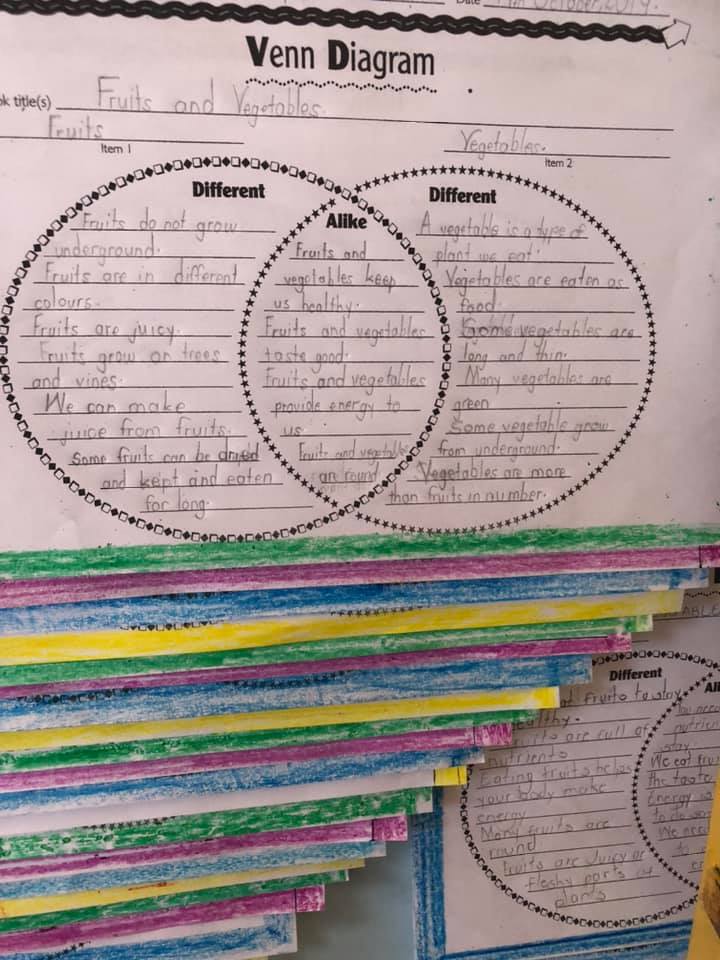 Date 14th October, 2019.
Venn Diagram
ok title(s) Fruits and Vegetables.
Fruits
Item 1
Vegetables.
Item 2
Different
Fruits do not grow
underground.
Fruits are in different
colours.
Fruits are juicy.
Fruits grow on trees
and vines.
We can make
juice from fruits.
Some fruits can be dried
and kept and eaten
for long.
Alike
Fruits and
vegetables keep
us healthy.
Fruits and vegetables
taste good.
Fruits and vegetables
provide energy to
us.
Fruits and vegetables
are round
Different
A vegetable is a type of
plant we eat.
Vegetables are eaten as
food.
Some vegetables are
long and thin.
Many vegetables are
green
Some vegetable grow
from underground.
Vegetables are more
than fruits in number.
ABLE
Different
at fruits to stay
ealthy.
ruits are full of
nutrients
Eating fruits helps
your body make
energy
Many fruits are
round
Fruits are juicy or
fleshy parts of
plants
Ali
You need
nutrien
stay
We eat fru
the taste
Energy
to do
We need
to